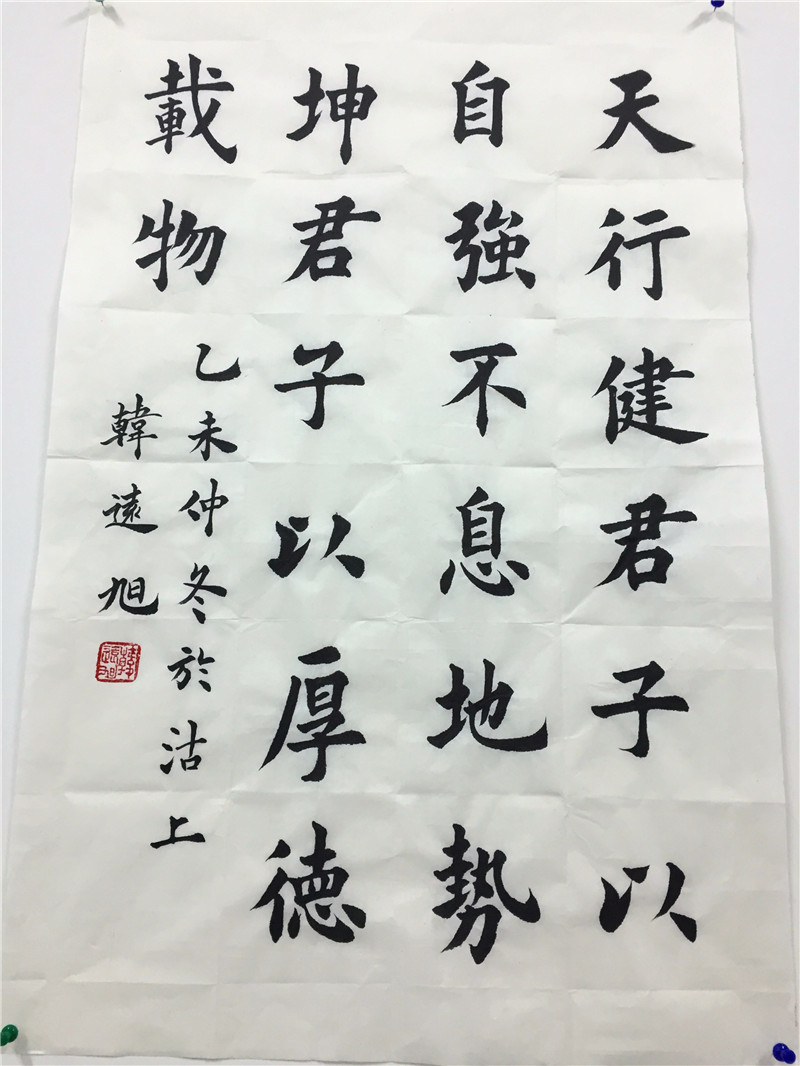 天行健君子以
自強不息地勢
坤君子以厚德
載物
乙未仲冬於沽上
韓遠旭